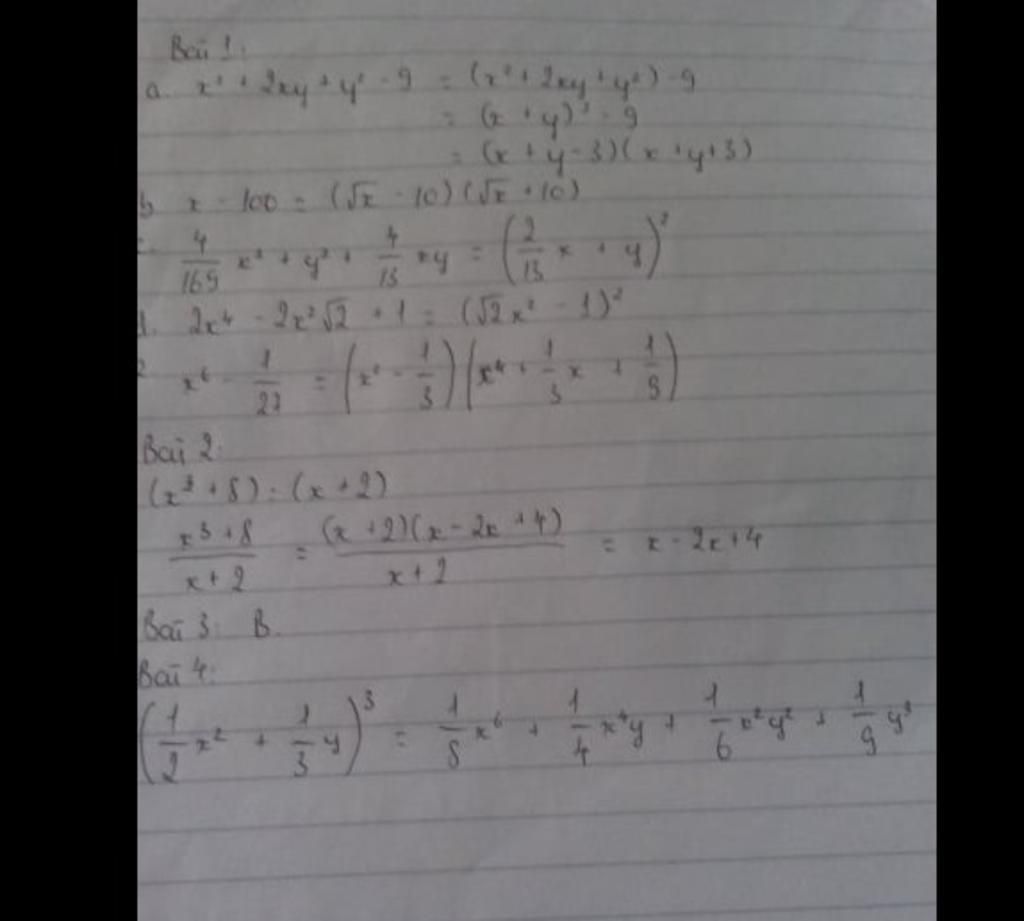 Bài 1:
a. x² + 2xy + y² - 9 = (x² + 2xy + y²) - 9
= (x + y)² - 9
= (x + y - 3)(x + y + 3)
b x - 100 = (√x - 10)(√x + 10)
4/169 x² + y² + 4/13 xy = (2/13 x + y)²
d. 2x⁴ - 2x²√2 + 1 = (√2x² - 1)²
x⁶ - 1/27 = (x² - 1/3)(x⁴ + 1/3 x + 1/9)
Bài 2:
(x³ + 8) : (x + 2)
x³ + 8 / x + 2 = (x + 2)(x - 2x + 4) / x + 2 = x - 2x + 4
Bài 3: B.
Bài 4:
(1/2 x² + 1/3 y)³ = 1/8 x⁶ + 1/4 x⁴y + 1/6 x²y² + 1/9 y³